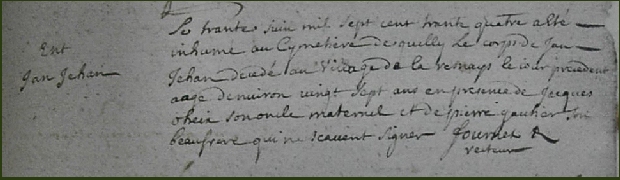 Ent
Jan Jehan
Le trante Juin mil sept cent trante quatre a esté
inhumé au Cymetière de quelly Le corps de Jan
Jehan decedé au Village de le le iour precedent
aagé denviron vingt sept ans en presence de Jacques
oheix son oncle maternel et de pierre gautier son
beaufrere qui ne scauent signer Journet R
recteur